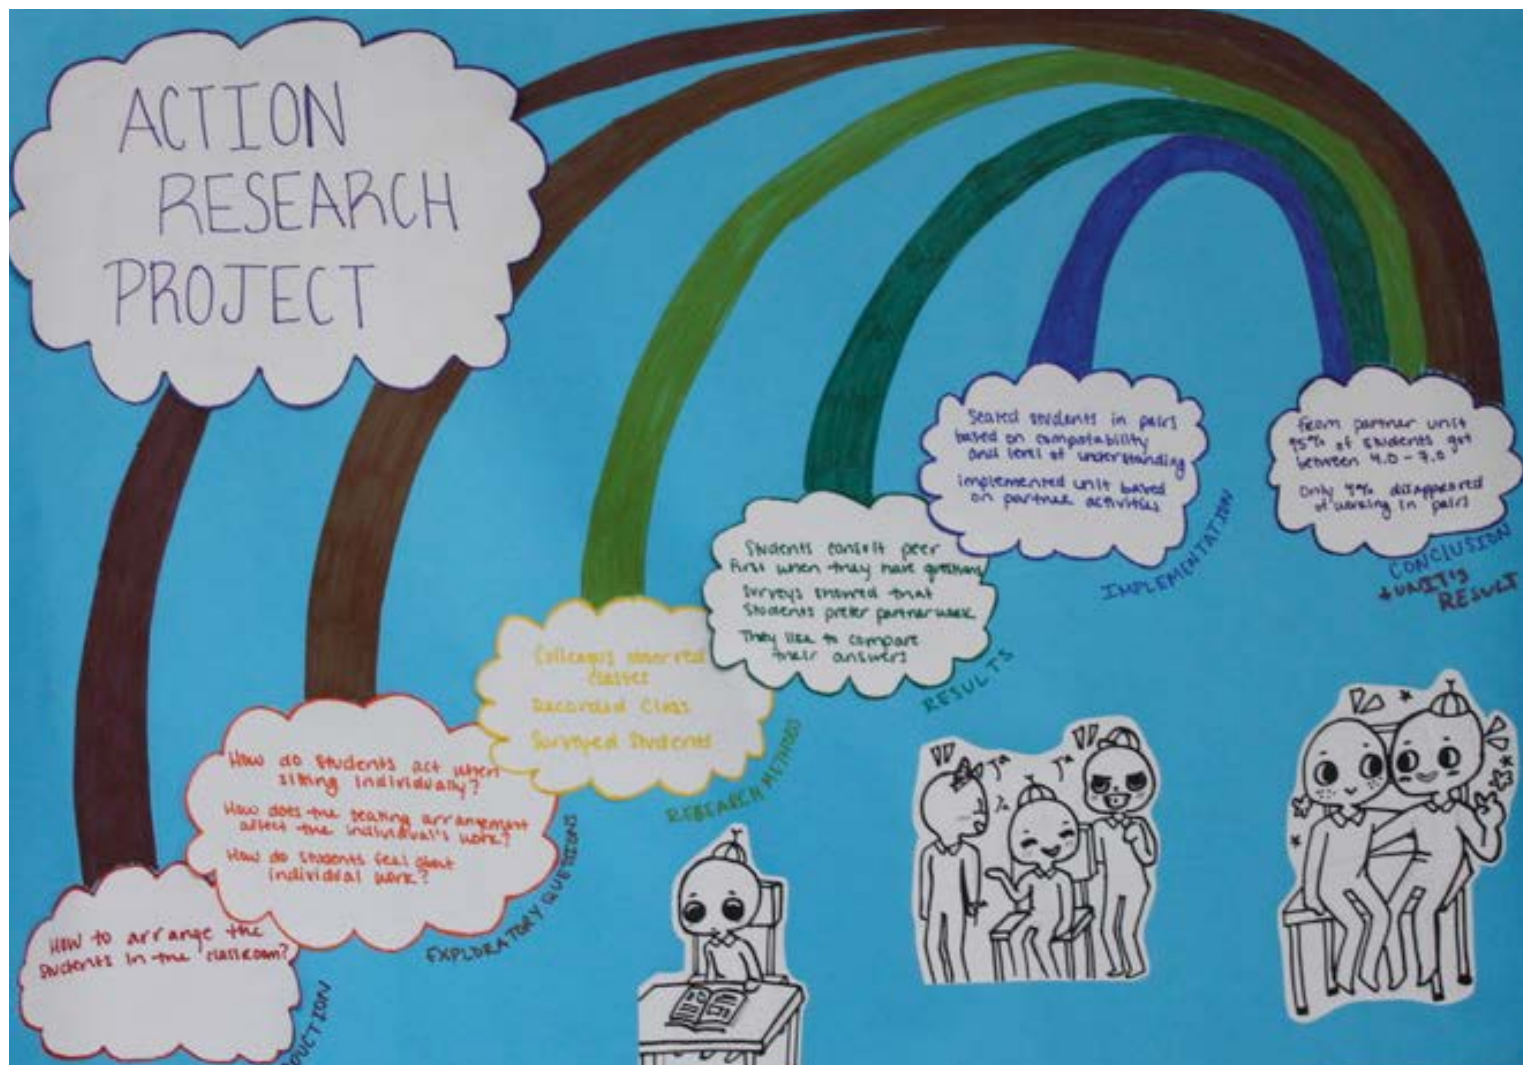 ACTION
RESEARCH
PROJECT
How to arrange the
students in the classroom?
DUCTION
How do students act when
sitting individually?
How does the seating arrangement
affect the individual's work?
How do students feel about
individual work?
EXPLORATORY QUESTIONS
Colleagues observed
classes
Recorded Class
Surveyed Students
RESEARCH METHODS
Students consult peer
first when they have questions
Surveys showed that
students prefer partner work
They like to compare
their answers
RESULTS
Seated students in pairs
based on compatability
and level of understanding
implemented unit based
on partner activities
IMPLEMENTATION
From partner unit
95% of students got
between 4.0 - 7.0
Only 9% disappeared
of working in pairs
CONCLUSION
+ UNIT'S
RESULT